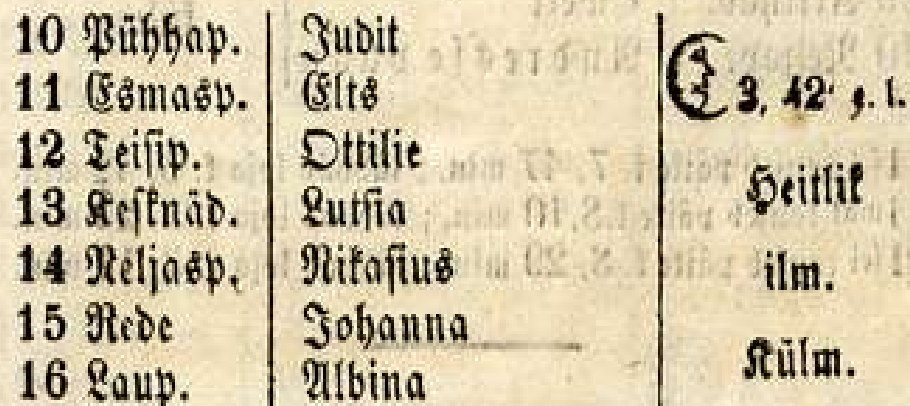 10 Pühhap. Judit
11 Esmasp. Elts 3, 42' e. l.
12 Teisip. Ottilie
13 Kesknäd. Lutsia Heitlik
14 Neljasp. Nikasius ilm.
15 Rede Johanna
16 Laup. Albina Külm.